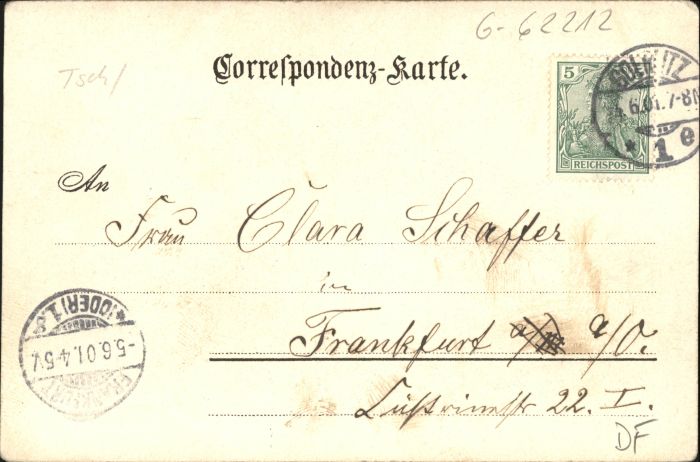 G-62212
Tsch/
Correspondenz-Karte.
5
REICHSPOST
GOERLITZ
4.6.01.7-8N
* 1 e
An
Frau Clara Schaffer
in
Frankfurt a/O.
22. I.
FRANKFURT
-5.6.01.4-5V.
(ODER) 1.
DF